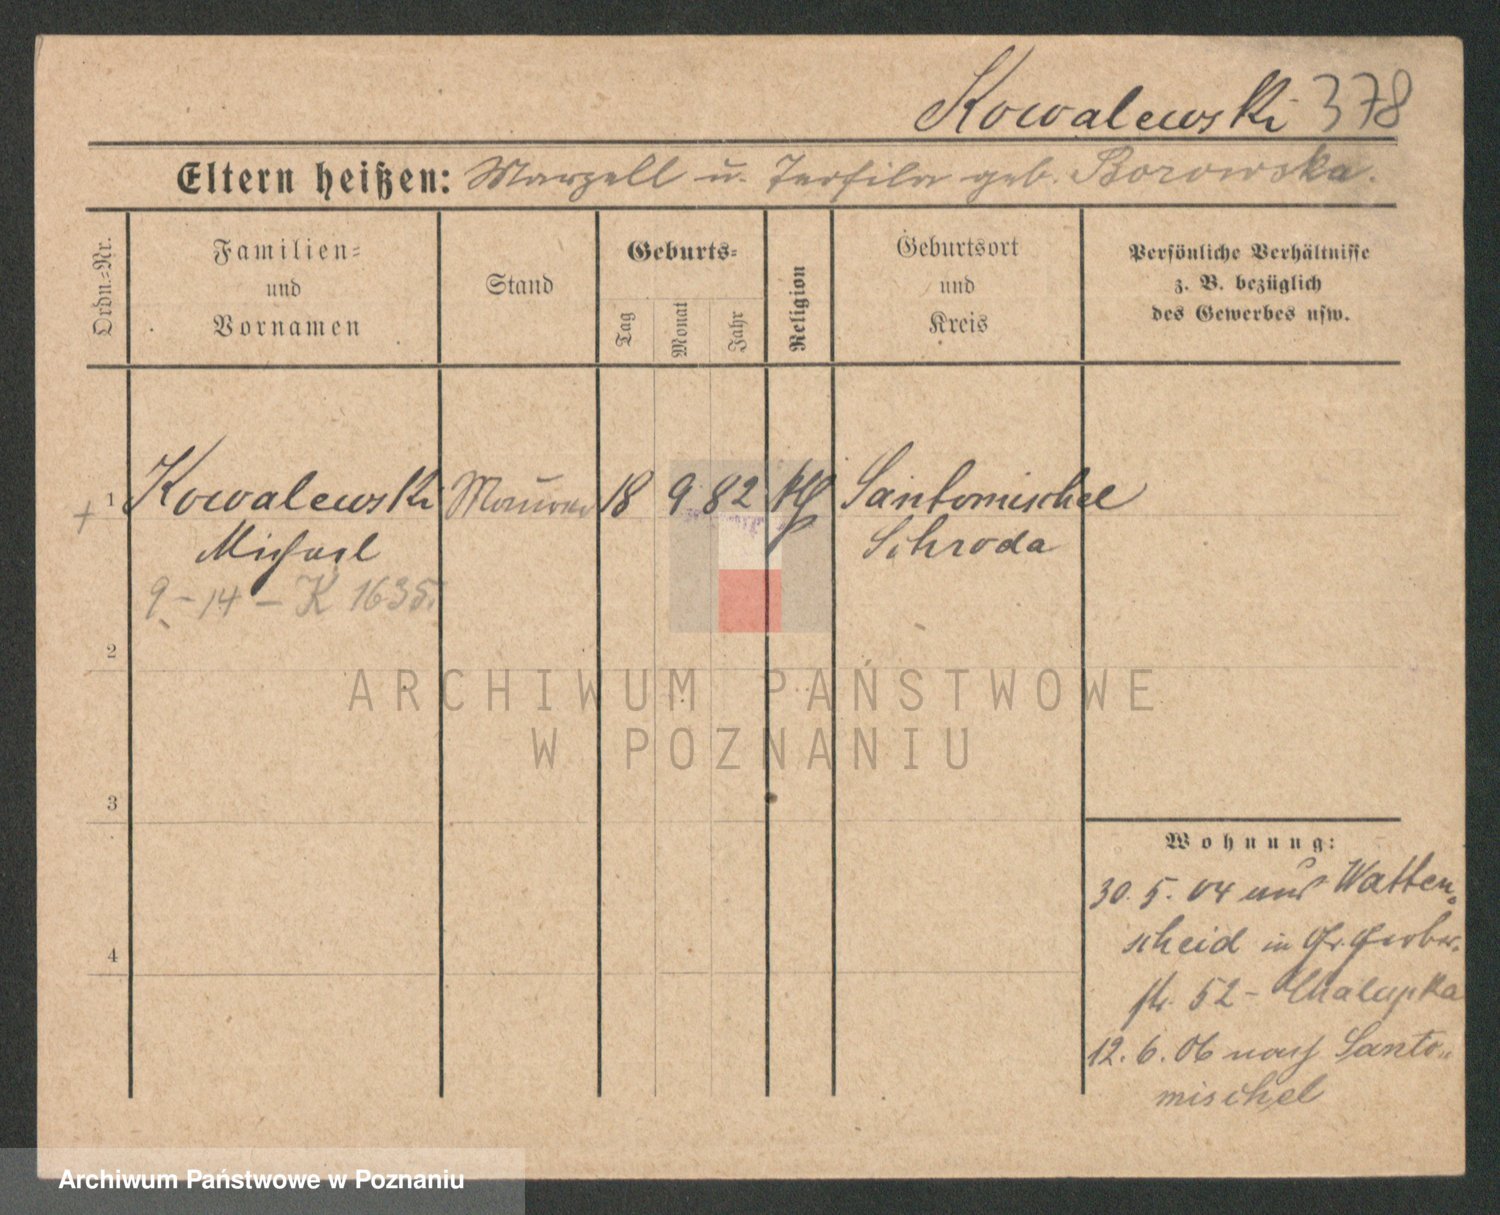 Kowalewski 378
Eltern heißen: Marzell u. Teofila geb. Borowska.
Ordn.=Nr.
Familien=
und
Vornamen
Stand
Geburts=
Tag
Monat
Jahr
Religion
Geburtsort
und
Kreis
Persönliche Verhältnisse
z. B. bezüglich
des Gewerbes usw.
+ 1 Kowalewski Maurer 18 9 82 kth Santomischel
Michael Schroda
9-14-K 1635.
2
ARCHIWUM PAŃSTWOWE
W POZNANIU
3
Wohnung:
30. 5. 04 aus Watten-
scheid in Gr. Gerber-
str. 52 - Chalupka
4
12. 6. 06 nach Santo-
mischel
Archiwum Państwowe w Poznaniu